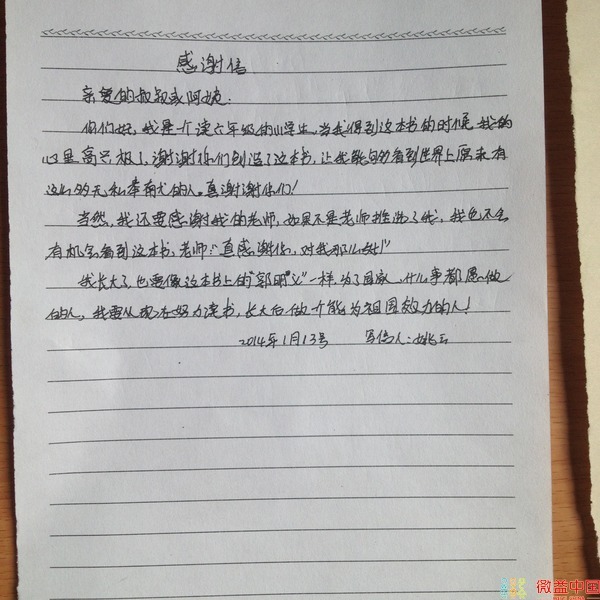 感谢信
亲爱的叔叔或阿姨:
你们好,我是一个读六年级的小学生,当我得到这本书的时候,我的
心里高兴极了,谢谢你们创造了这本书,让我能够看到世界上原来有
这么多无私奉献的人。真谢谢你们!
当然,我还要感谢我的老师,如果不是老师推选了我,我也不会
有机会看到这本书,老师:"真感谢您,对我那么好!"
我长大了,也要像这本书上的"郭明义"一样,为了国家,什么事都愿做
的人,我要从现在努力读书,长大后做个能为祖国效力的人!
2014年1月13号 写信人:姚云
微益中国